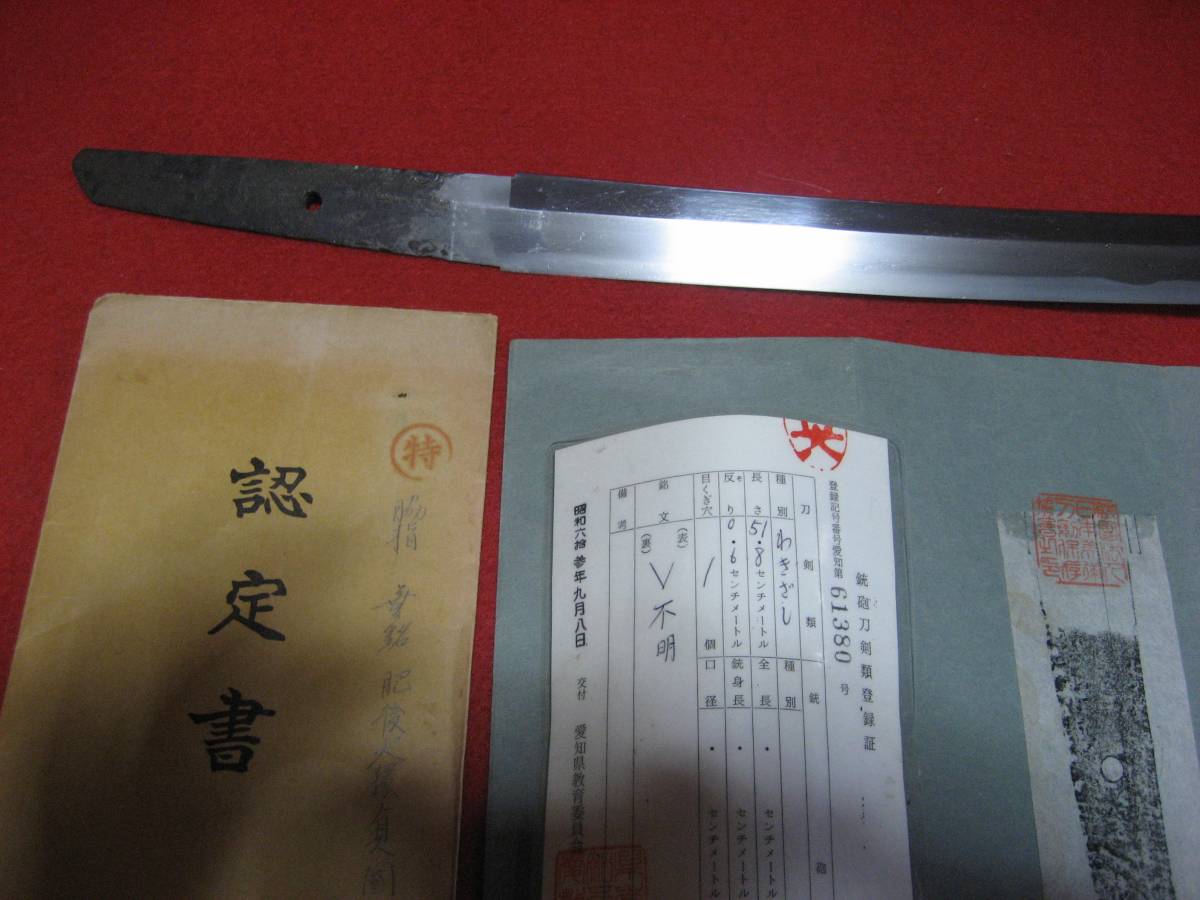 認定書
特
脇指
肥後
銃砲刀剣類登録証
登録記号番号愛知第 61380 号
刀剣類
銃砲
種別 わきざし
種別
長さ 51.8センチメートル
全長 ・ センチメートル
反り 0.6センチメートル
銃身長 ・ センチメートル
目くぎ穴 1 個
口径 ・ センチメートル
銘文 (表) (裏) 不明
備考
昭和六拾参年九月八日 交付 愛知県教育委員会